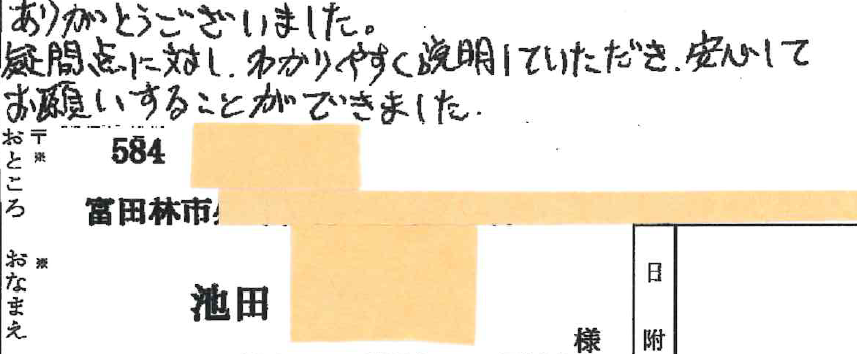 ありがとうございました。
疑問点に対し、わかりやすく説明していただき、安心して
お願いすることができました.
〒
※
584
おところ
富田林市
おなまえ
※
池田
様
日附